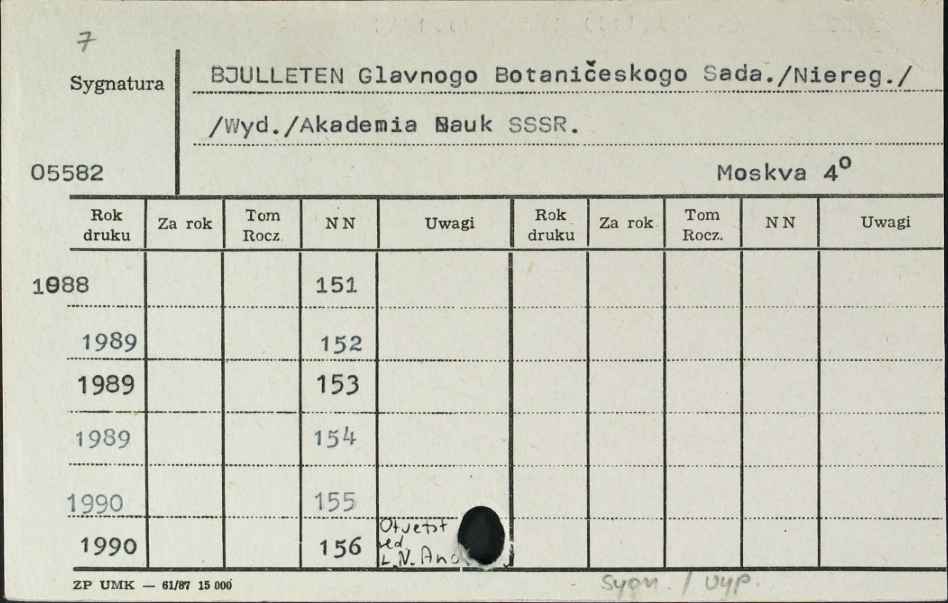 7
Sygnatura
BJULLETEN Glavnogo Botaničeskogo Sada./Niereg./
/Wyd./Akademia Nauk SSSR.
05582
Moskva 4º
Rok druku Za rok Tom Rocz. N N Uwagi Rok druku Za rok Tom Rocz. N N Uwagi
1988 151
1989 152
1989 153
1989 154
1990 155
1990 156
Otvetst
red
L.N.
ZP UMK — 61/87 15 000
Sygn. / Wyp.